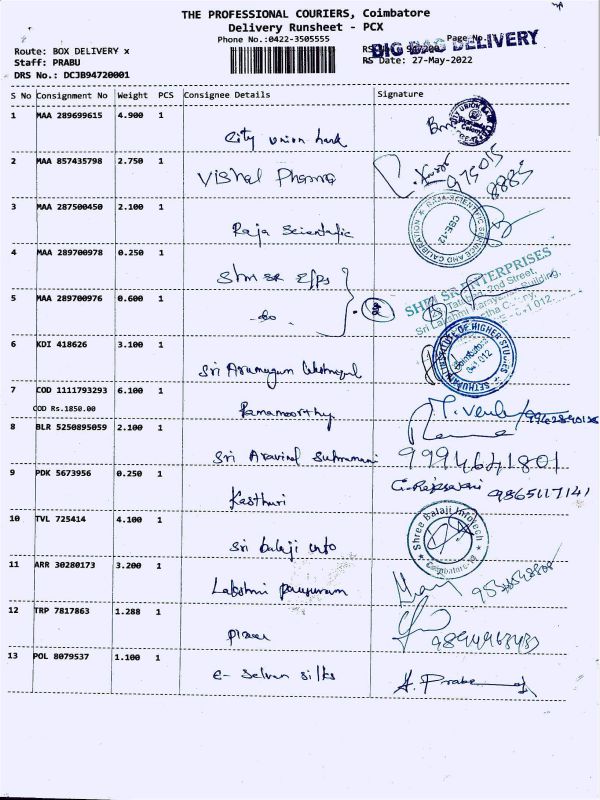 THE PROFESSIONAL COURIERS, Coimbatore
Delivery Runsheet - PCX
Phone No.:0422-3505555
Page No.
BIG BAG DELIVERY
Route: BOX DELIVERY x
Staff: PRABU
RS Date: 27-May-2022
DRS No.: DCJB94720001
S No Consignment No Weight PCS Consignee Details Signature
1 MAA 289699615 4.900 1
City union bank
2 MAA 857435798 2.750 1
Vishal Pharma
975015
8885
3 MAA 287500450 2.100 1
Raja Scientific
RAJA SCIENTIFIC SERVICE AND CALIBRATION
CBE-12
4 MAA 289700978 0.250 1
Shri SR
SHRI SR ENTERPRISES
2nd Street,
Sri Lakshmi Building,
5 MAA 289700976 0.600 1
-do-
6 KDI 418626 3.100 1
Sri Arumugam
INSTITUTE OF HIGHER STUDIES
7 COD 1111793293 6.100 1
COD Rs.1850.00
Ramamoorthy
8 BLR 5250895059 2.100 1
Sri Aravind
9994641801
9 PDK 5673956 0.250 1
Kasthuri
G. Rajeswari
9865117141
10 TVL 725414 4.100 1
Sri balaji info
Shree Balaji Infotech
Coimbatore-12
11 ARR 30280173 3.200 1
Lakshmi
12 TRP 7817863 1.288 1
13 POL 8079537 1.100 1
e- Selvan silks